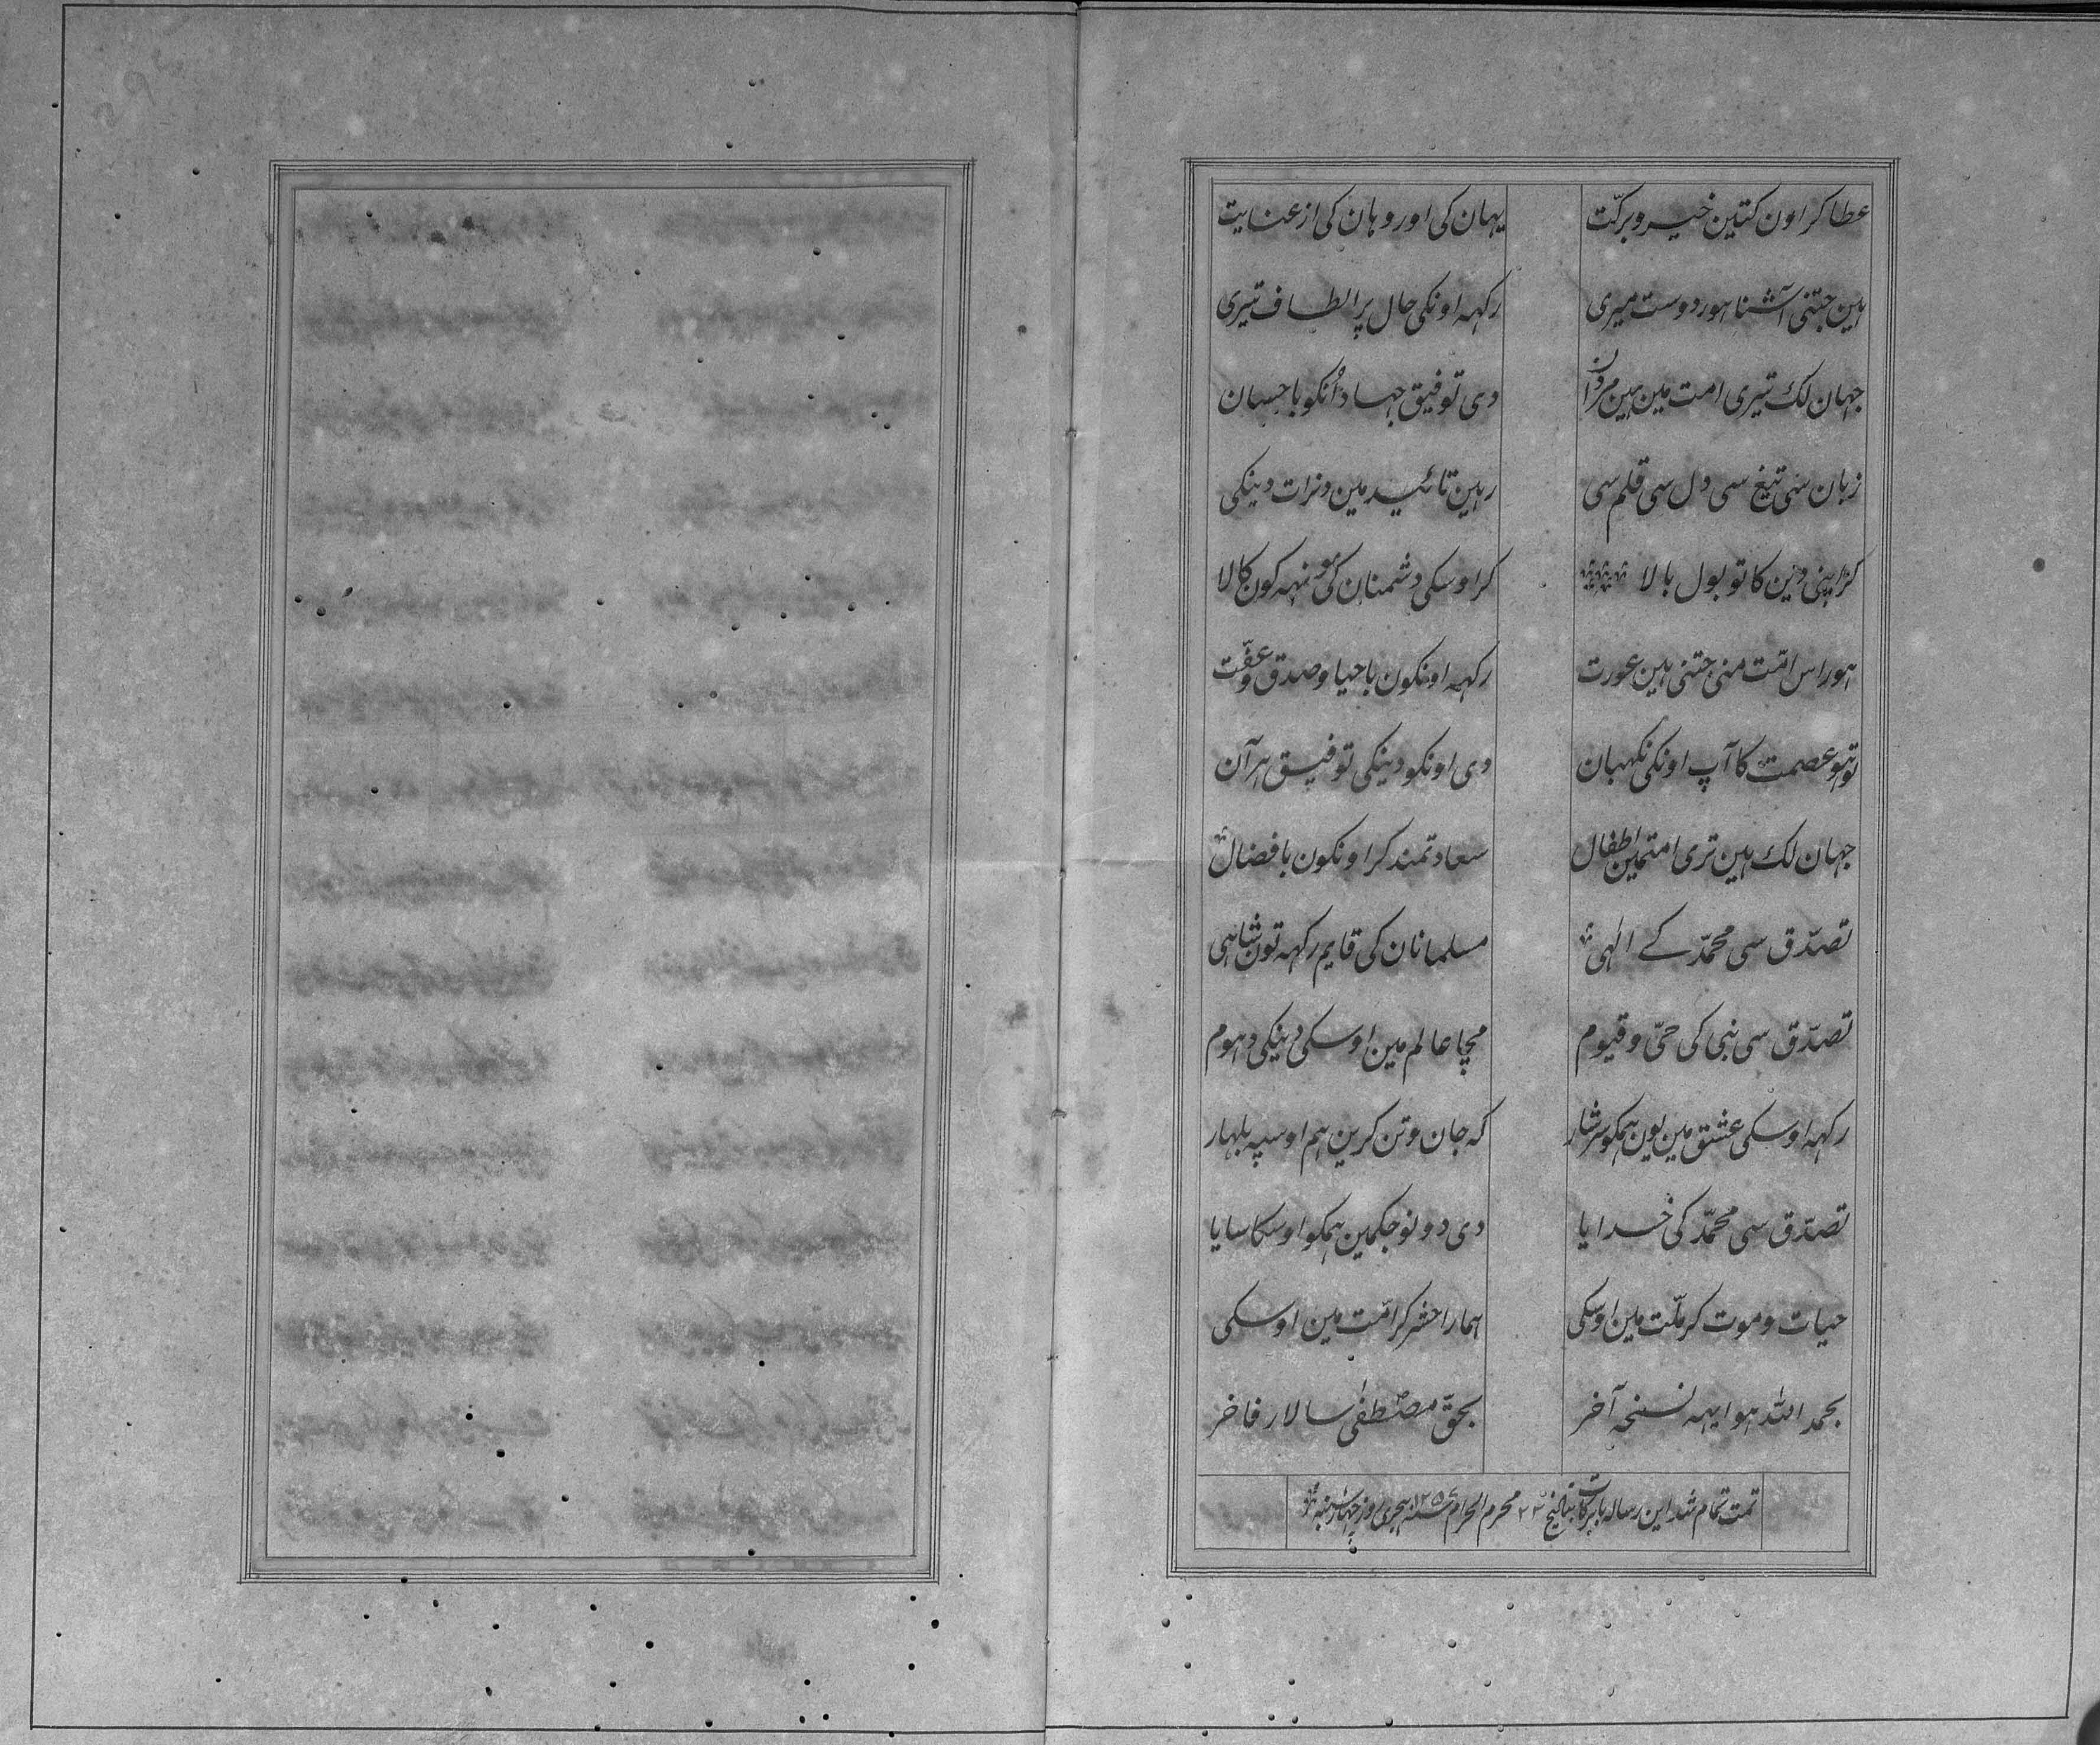 عطا کر اون کتین خیر و برکت یہان کی اور وہان کی از عنایت
ہین جتنی آشنا ہور دوست میری رکہہ اونکی حال پر الطاف تیری
جہان لک تیری امت مین ہین مردان دی توفیق جہاد اُنکو باحسان
زبان سی تیغ سی دل سی قلم سی رہین تائید مین دنرات دینکی
کر اپنی دین کا تو بول بالا کر اوسکی دشمنان کی منہہ کون کالا
ہور اس امّت منی جتنی ہین عورت رکہہ اونکون باحیا و صدق و عفّت
تو ہو عصمت کا آپ اونکی نکہبان دی اونکو دینکی توفیق ہر آن
جہان لک ہین تری امتمین اطفال سعادتمند کر اونکون بافضال
تصدّق سی محمّد کے الٰہی مسلمانان کی قایم رکہہ تون شاہی
تصدّق سی نبی کی حیّ و قیوم مچا عالم مین اوسکی دینکی دہوم
رکہہ اوسکی عشق مین یون ہمکو سرشار کہ جان و تن کرین ہم اوسپہ بلہار
تصدّق سی محمّد کی خدایا دی دونو جکمین ہمکو اوسکا سایا
حیات و موت کر ملّت مین اوسکی ہمارا حشر کر امّت مین اوسکی
بحمد اللہ ہوا یہہ نسخہ آخر بحقّ مصطفٰی سالار فاخر
تمت تمام شد این رساله بابرکات بتاریخ ۲۳ محرم الحرام سنه ۱۲۵۶ ہجری روز چہارشنبه